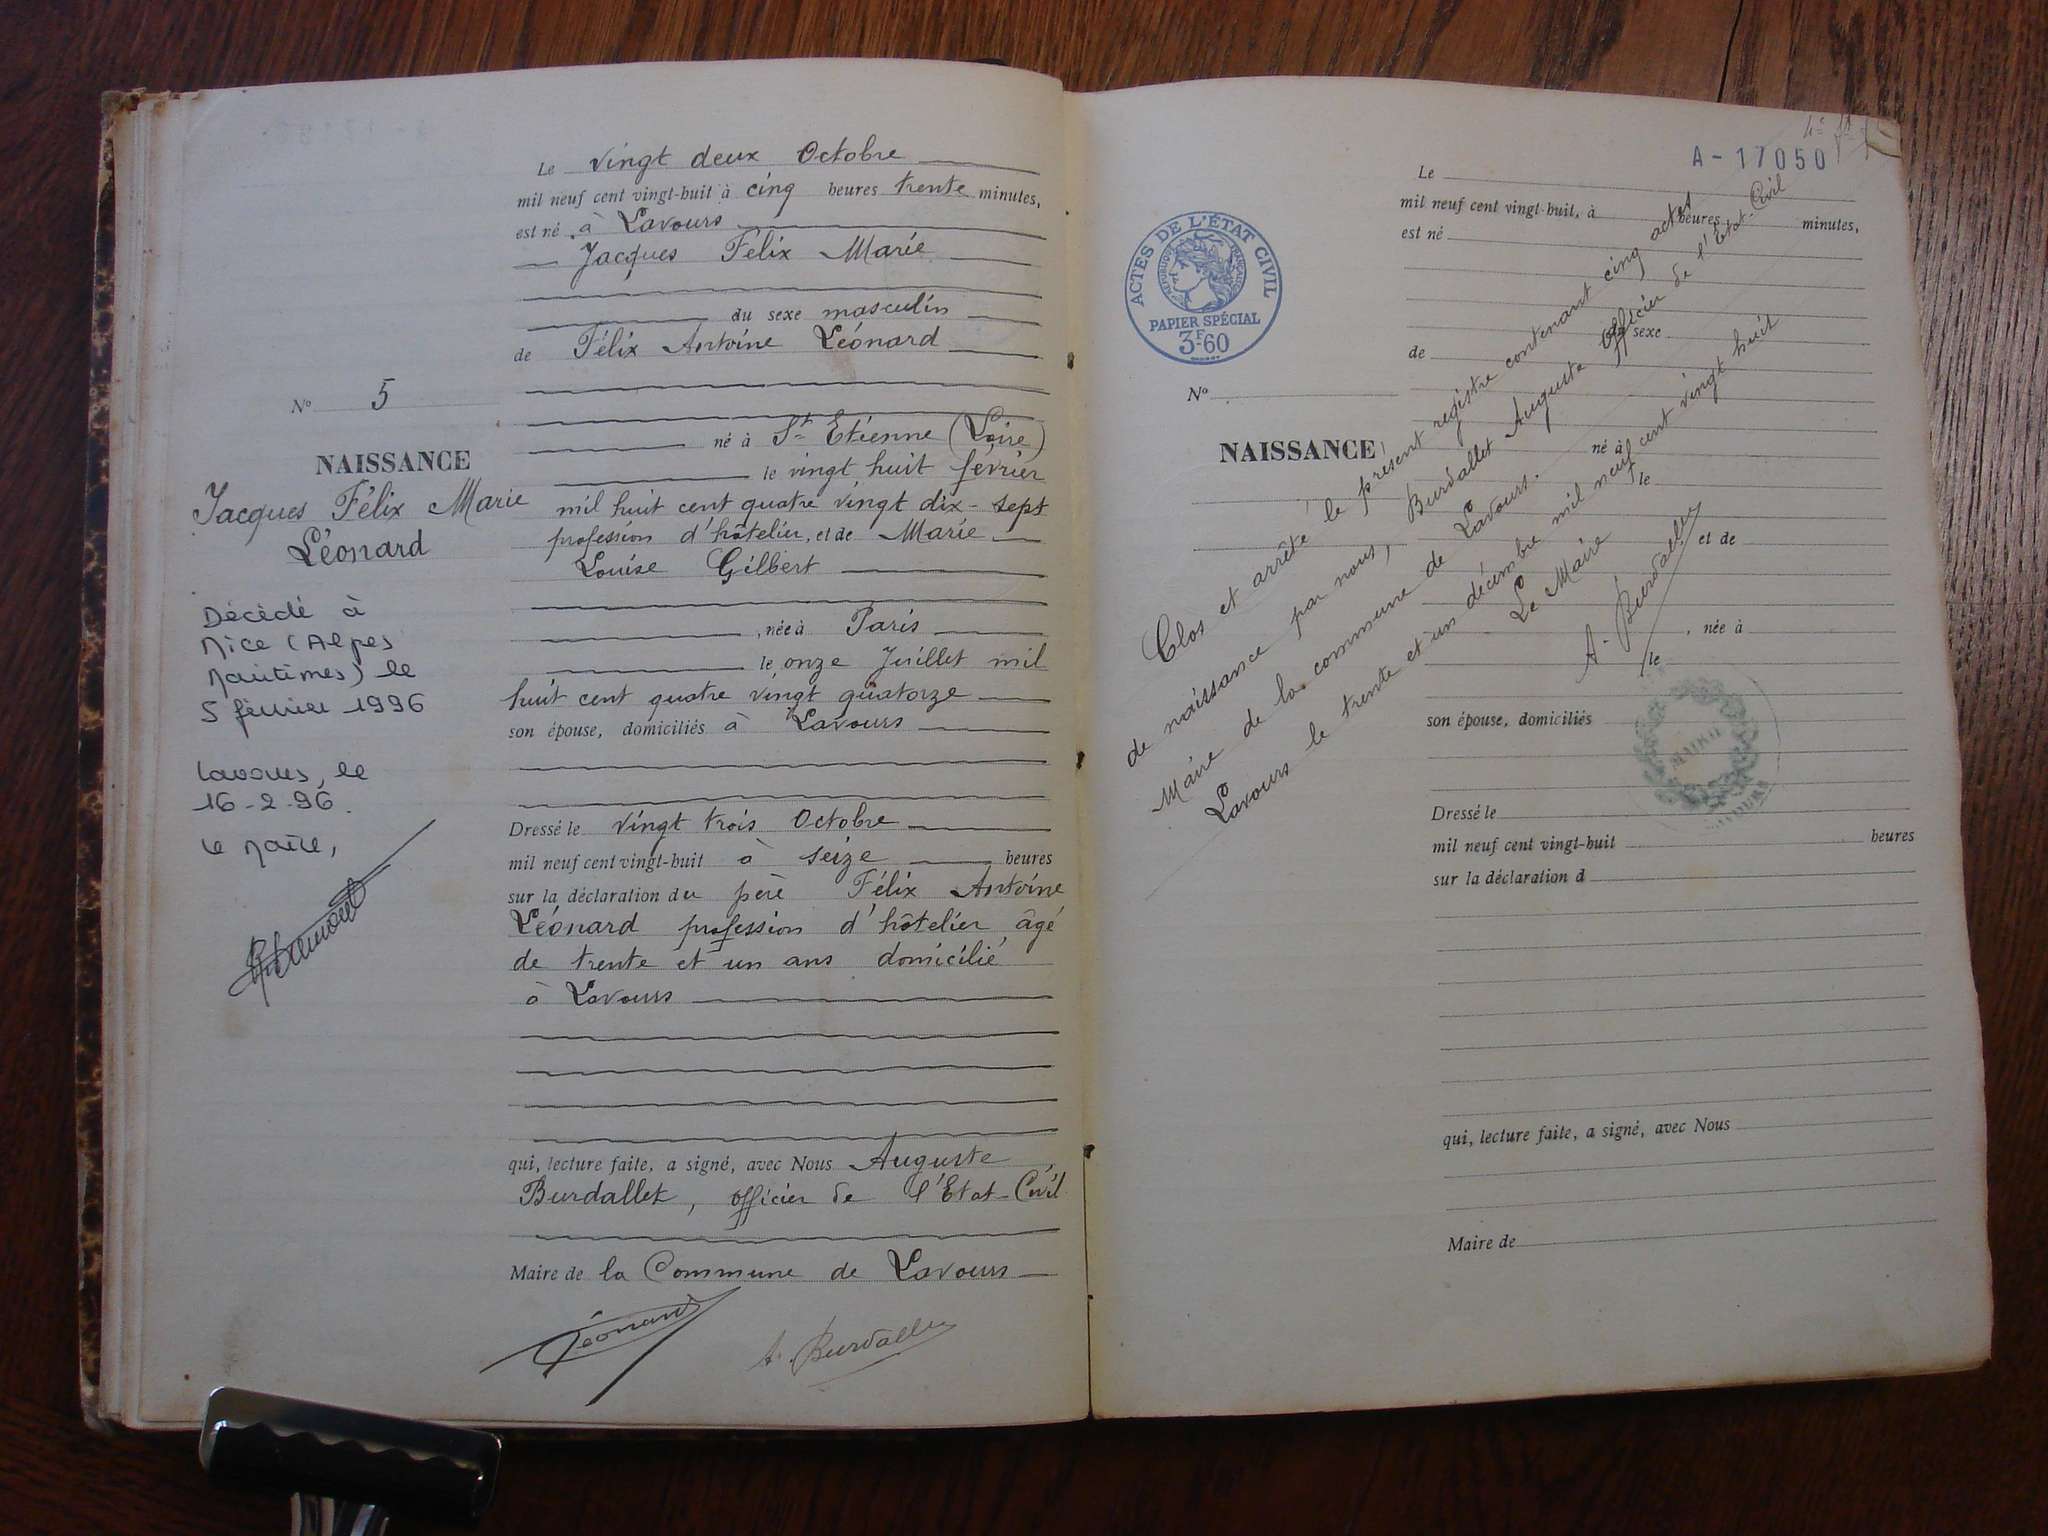 Le vingt deux Octobre
mil neuf cent vingt-huit à cinq heures trente minutes,
est né à Lavours
Jacques Félix Marie
du sexe masculin
de Félix Antoine Léonard
né à St Etienne (Loire)
le vingt huit février
mil huit cent quatre vingt dix-sept
profession d'hôtelier, et de Marie
Louise Gilbert
, née à Paris
le onze Juillet mil
huit cent quatre vingt quatorze
son épouse, domiciliés à Lavours
Dressé le vingt trois Octobre
mil neuf cent vingt-huit à seize heures
sur la déclaration du père Félix Antoine
Léonard profession d'hôtelier âgé
de trente et un ans domicilié
à Lavours
qui, lecture faite, a signé, avec Nous Auguste
Burdallet, officier de l'Etat-Civil
Maire de la Commune de Lavours
Léonard
A. Burdallet
No 5
NAISSANCE
Jacques Félix Marie
Léonard
Décédé à
Nice (Alpes
Maritimes) le
5 février 1996
Lavours, le
16-2-96.
Le Maire,
A-17050
ACTES DE L'ÉTAT CIVIL
RÉPUBLIQUE FRANÇAISE
PAPIER SPÉCIAL
3F60
No
NAISSANCE
Le
mil neuf cent vingt-huit, à heures minutes,
est né
sexe
de
né à
le
et de
, née à
le
son épouse, domiciliés
Dressé le
mil neuf cent vingt-huit heures
sur la déclaration d
qui, lecture faite, a signé, avec Nous
Maire de
Clos et arrêté le présent registre contenant cinq actes
de naissance par nous, Burdallet Auguste officier de l'Etat-Civil
Maire de la commune de Lavours.
Lavours le trente et un décembre mil neuf cent vingt huit
Le Maire
A. Burdallet
MAIRIE
LAVOURS